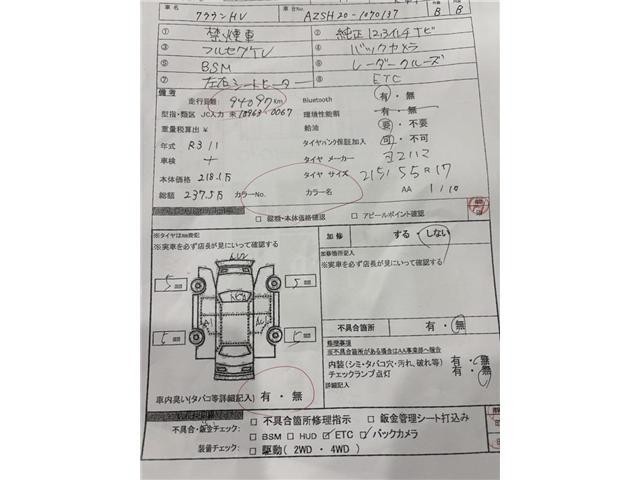 車名 クラウンHV 車台No. AZSH20-1070137 B B
① 禁煙車 ② 純正12.3インチナビ
③ フルセグTV ④ バックカメラ
⑤ BSM ⑥ レーダークルーズ
⑦ 左右シートヒーター ⑧ ETC
備考
走行距離 94097 Km Bluetooth 有・無
型指・類区 JC入力 未 18963 0067 環境性能割 有・無
重量税算出 ¥ 給油 要・不要
年式 R3 11 タイヤパンク保証加入 可・不可
車検 ナ タイヤ メーカー ヨコハマ
本体価格 218.1万 タイヤ サイズ 215/55R17
総額 237.5万 カラーNo. カラー名 AA 1/10
□ 縦横・本体価格確認 □ アピールポイント確認
※タイヤは㎜表記
※実車を必ず店長が見にいって確認する
加修 する・しない
加修箇所記入
※実車を必ず店長が見にいって確認する
5 ㎜ 5 ㎜
5 ㎜ 5 ㎜
不具合箇所 有・無
修理事項
※不具合箇所がある場合はAA事業部へ報告
内装(シミ・タバコ穴・汚れ、破れ等) 有・無
チェックランプ点灯 有・無
詳細記入
車内臭い(タバコ等詳細記入) 有・無
不具合・鈑金チェック: □ 不具合箇所修理指示 □ 鈑金管理シート打込み
装備チェック: □ BSM □ HUD ☑ ETC ☑ バックカメラ
□ 駆動( 2WD ・ 4WD )